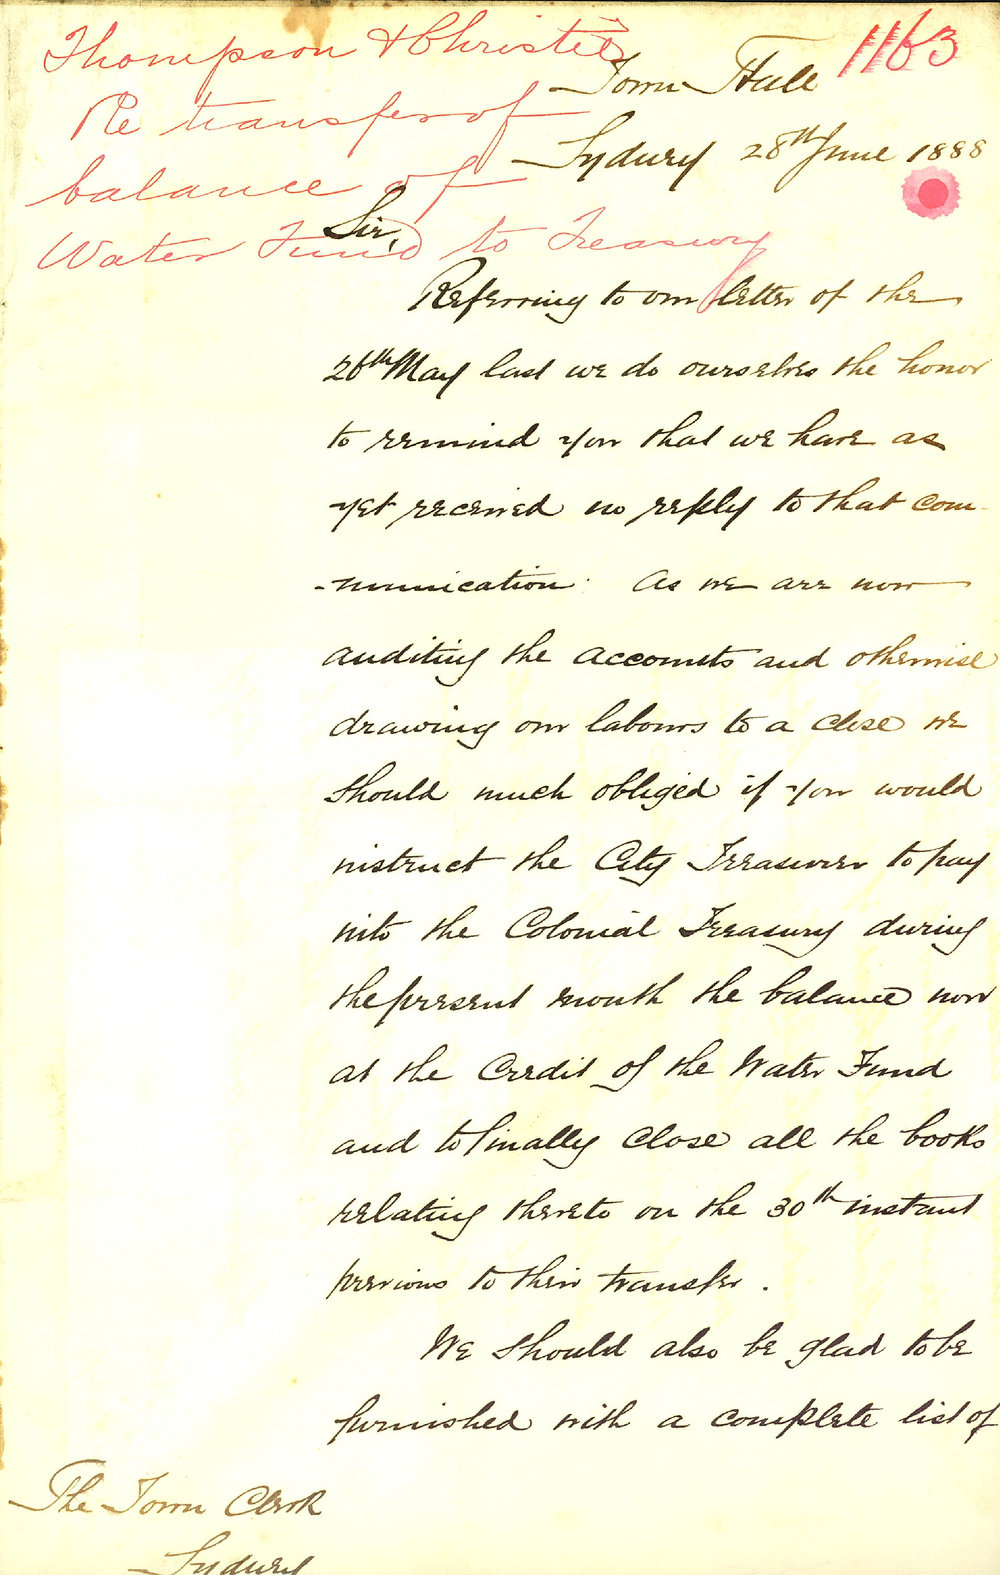 Thompson & Christie
Re transfer of
balance of
Water Fund to Treasury
1163
Town Hall
Sydney 28th June 1888
Sir,
Referring to our letter of the
26th May last we do ourselves the honor
to remind you that we have as
yet received no reply to that com-
-munication. As we are now
auditing the accounts and otherwise
drawing our labours to a close we
should much obliged if you would
instruct the City Treasurer to pay
into the Colonial Treasury during
the present month the balance now
at the Credit of the Water Fund
and to finally close all the books
relating thereto on the 30th instant
previous to their transfer.
We should also be glad to be
furnished with a complete list of
The Town Clerk
Sydney